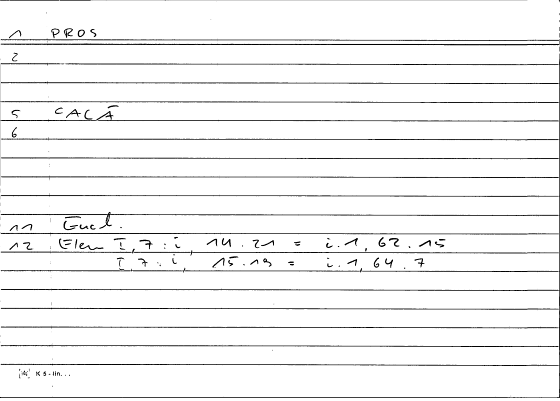 1 PROS
2
5 CALĀ
6
11 Eucl.
12 Elem I, 7 : i, 14.21 = i.1, 62.15
I, 7 : i, 15.19 = i.1, 64.7
K 5 - lin...